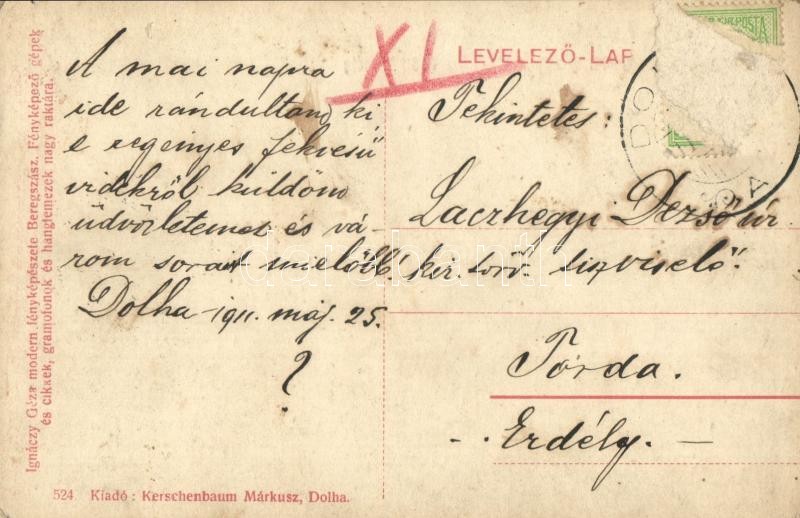 XI
LEVELEZŐ-LAP
A mai napra
ide rándultam ki
e regényes fekvésű
vidékről küldöm
üdvözletemet és vá-
rom sorait mielőbb!
Dolha 1911. máj. 25.
?
Tekintetes:
Laczhegyi Dezső úr
kir. törv. tisztviselő.
Torda.
-. Erdély. —
Ignáczy Géza modern fényképészete Beregszász. Fényképező gépek
és cikkek, gramofonok és hanglemezek nagy raktára.
524 Kiadó : Kerschenbaum Márkusz, Dolha.